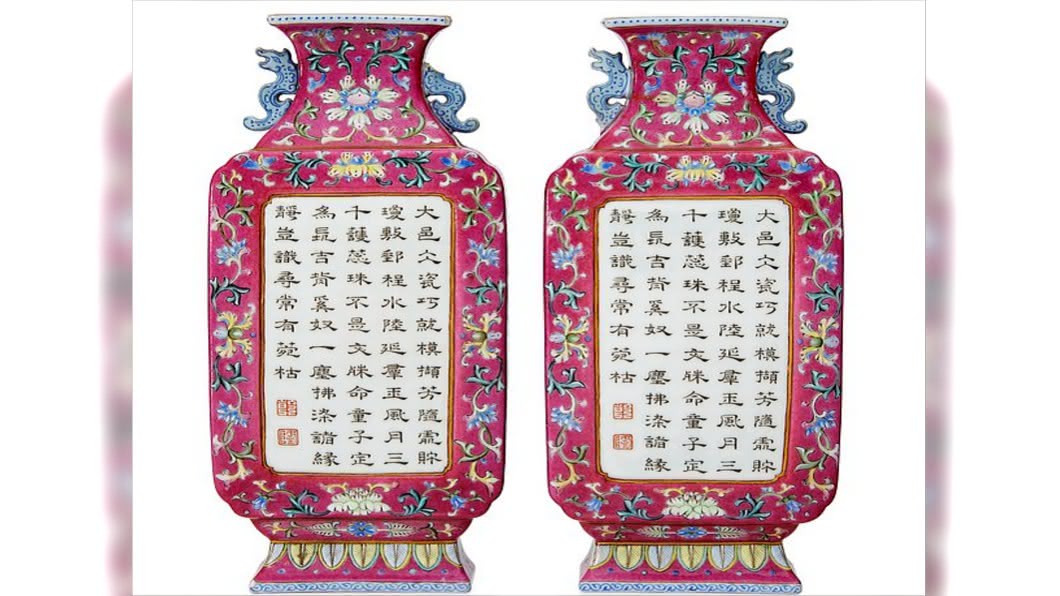 大邑仌瓷巧就模擷芳隨處貯
瓊敷郵程水陸延羣玉風月三
千護蕊珠不是文牀命童子定
為昆吉背奚奴一塵拂染諸緣
靜豈識尋常有菀枯
大邑仌瓷巧就模擷芳隨處貯
瓊敷郵程水陸延羣玉風月三
千護蕊珠不是文牀命童子定
為昆吉背奚奴一塵拂染諸緣
靜豈識尋常有菀枯